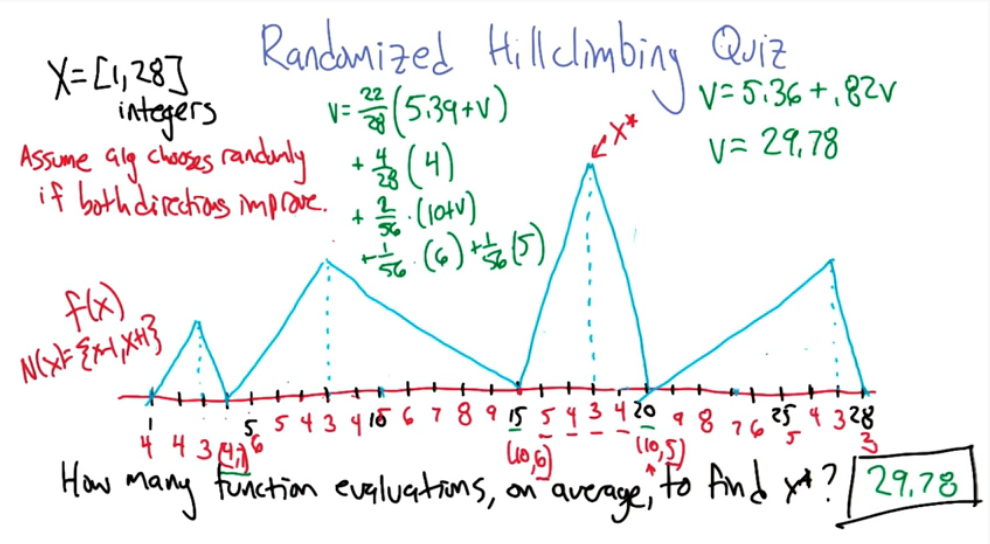 Randomized Hillclimbing Quiz
X=[1,28]
integers
Assume alg chooses randomly
if both directions improve.
v=22/28(5.39+v)
+4/28(4)
+2/56·(10+v)
+1/56·(6)+1/56(5)
v=5.36+.82v
v=29.78
x*
f(x)
N(x)={x-1,x+1}
1 5 5 4 3 4 10 6 7 8 9 15 5 4 3 4 20 9 8 7 6 25 4 3 28
4 4 3 (4,7) 6 5 (10,6) (10,5) 5 3
How many function evaluations, on average, to find x*? 29.78